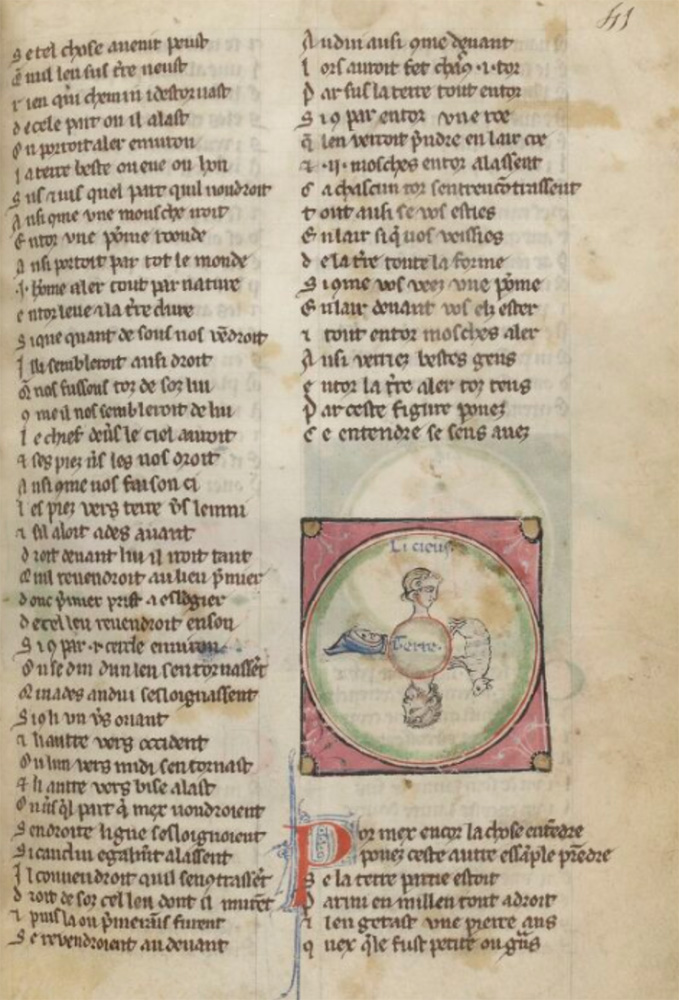 41
Se tel chose avenir peust
Q̃ nul leu sus tr̃e neust
rien qui chemin i destornast
de cele part ou il alast
On porroit aler environ
la terre beste ou eve ou hon
Sus ⁊ ius quel part quil voudroit
Ansi ꝯme une mousche iroit
Entor une põme roonde
Ansi porroit par tot le monde
.i. hõme aler tout par nature
entor leve ⁊ la tr̃e dure
Si que quant desouz nos vẽdroit
Il li sembleroit ausi droit
Q̃ nos fussons tor desoz lui
ꝯme il nos sembleroit de lui
Le chief deũs le ciel auroit
⁊ ses piez ũs les nos droit
Ansi ꝯme nos faison ci
les piez vers terre ũs le mi
⁊ sil aloit ades avant
droit devant lui il iroit tant
Q̃ il revendroit au lieu p̃mier
donc p̃mier prist a esloigier
de cel leu revendroit en son
Si ꝯ par .i. cercle environ
Ou se dui dun leu sen tornassẽt
Q̃ ina des an dui sesloignassent
Si ꝯ li un ũs oriant
⁊ li autre vers occident
Ou lun vers midi sen tornast
⁊ li autre vers bise alast
Ou ũs q̃l part q̃ mex voudroient
Sen droite ligne sesloignoient
Si cauclun egalmt̃ alassent
Il convendroit quil senꝯtrassẽt
droit desoz cel leu dont il murẽt
⁊ puis la ou p̃merains furent
Se revendroient au devant
Au dui ausi ꝯme devant
lors auroit fet chãꝯ .i. tor
Par sus la terre tout entor
Si ꝯ par entor une roe
q̃ len verroit p̃ndre en lair coe
⁊ .ii. mosches entor alassent
Ca chascun tor sentrencõtrassent
tout ausi se vos esties
En lair si q̃ vos veissies
de la tr̃e toute la forme
Si ꝯme vos veez une põme
En lair devant vos elz ester
⁊ tout entor mosches aler
Ausi verriez bestes gens
entor la tr̃e aler toz tens
Par ceste figure ponez
Ce entendre se sens avez
Li cieus.
Terre.
Por mex encor la chose entẽdre
ponez ceste autre essãple prẽdre
Se la terre partie estoit
Par mi en milleu tout adroit
⁊ len getast une pierre ans
quex q̃le fust petite ou grãs